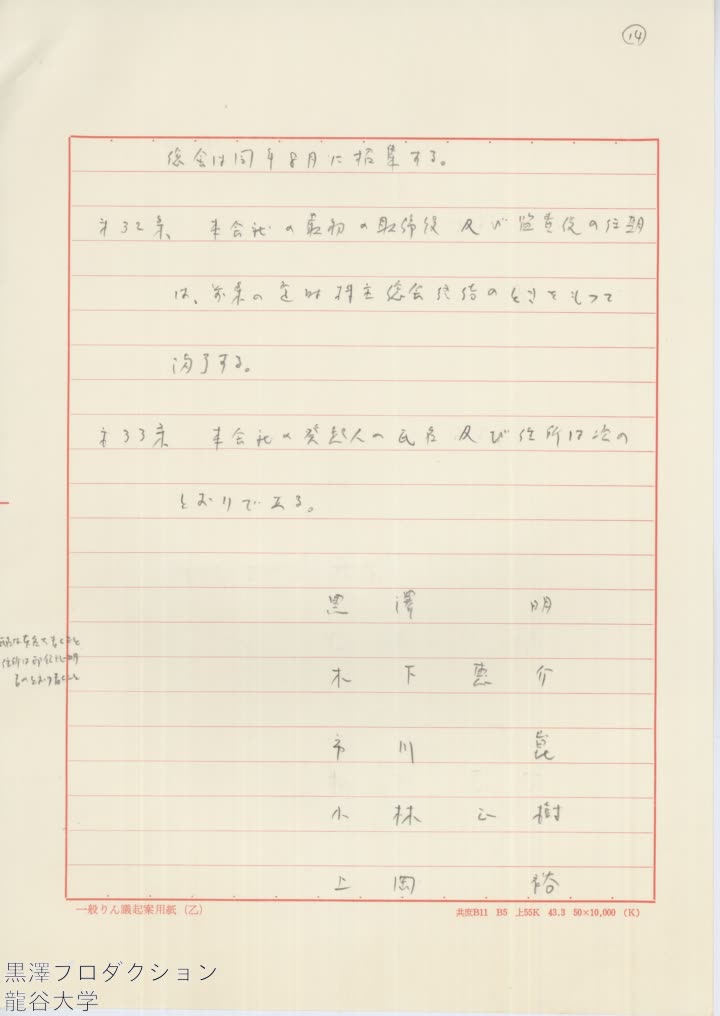 ⑭
総会は同年8月に招集する。
第32条、本会社の最初の取締役及び監査役の任期
は、前条の定時株主総会終結のときをもつて
満了する。
第33条 本会社の発起人の氏名及び住所は次の
とおりである。
黒澤 明
木下恵介
市川 崑
小林正樹
上岡 裕
一般りん議起案用紙(乙)
共庶B11 B5 上55K 43.3 50×10,000 (K)
黒澤プロダクション
龍谷大学